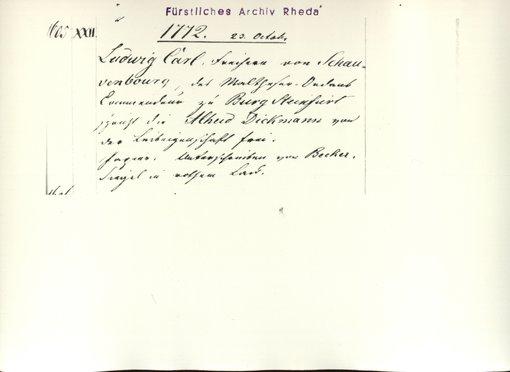 Fürstliches Archiv Rheda
XXII. 1772. 23. Octob.
Ludwig Carl. Freiherr von Schau-
enbourg, des Malthefer-Ordens
Commandeur zu Burg Steinfurt
spricht die Dickmann von
der Leibeigenschaft frei.
Papier. Unterschrieben von Becker.
Siegel in rothem Lack.